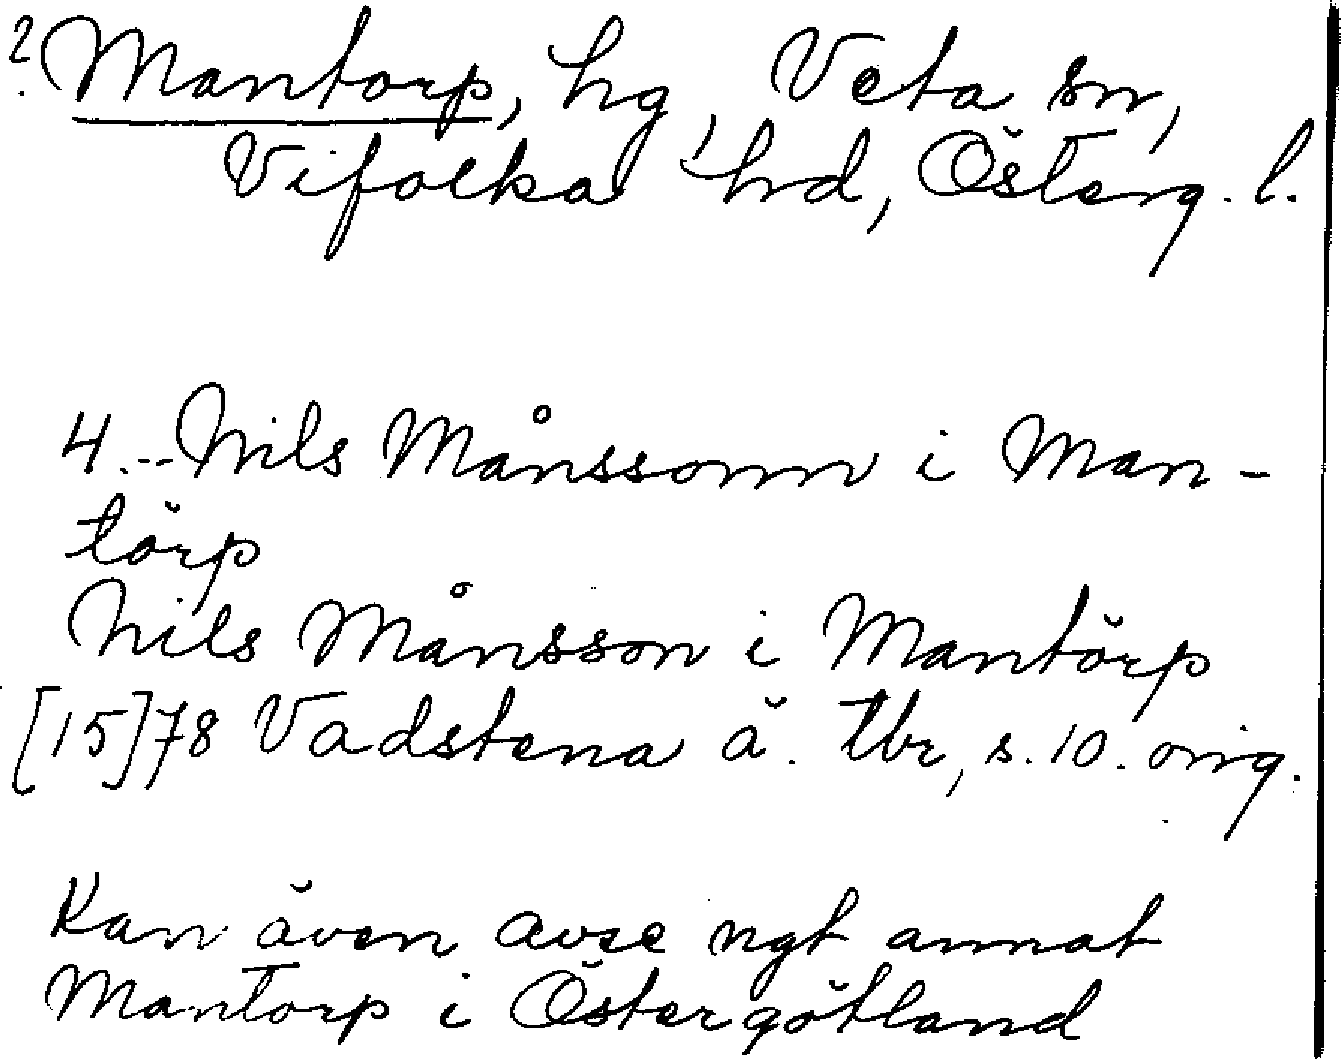 ? Mantorp, hg, Veta sn,
Vifolka hd, Österg. l.
4 .-- Nils Månssonn i Man-
törp
Nils Månsson i Mantörp
[15]78 Vadstena ä. tbr, s. 10. orig.
Kan även avse ngt annat
Mantorp i Östergötland